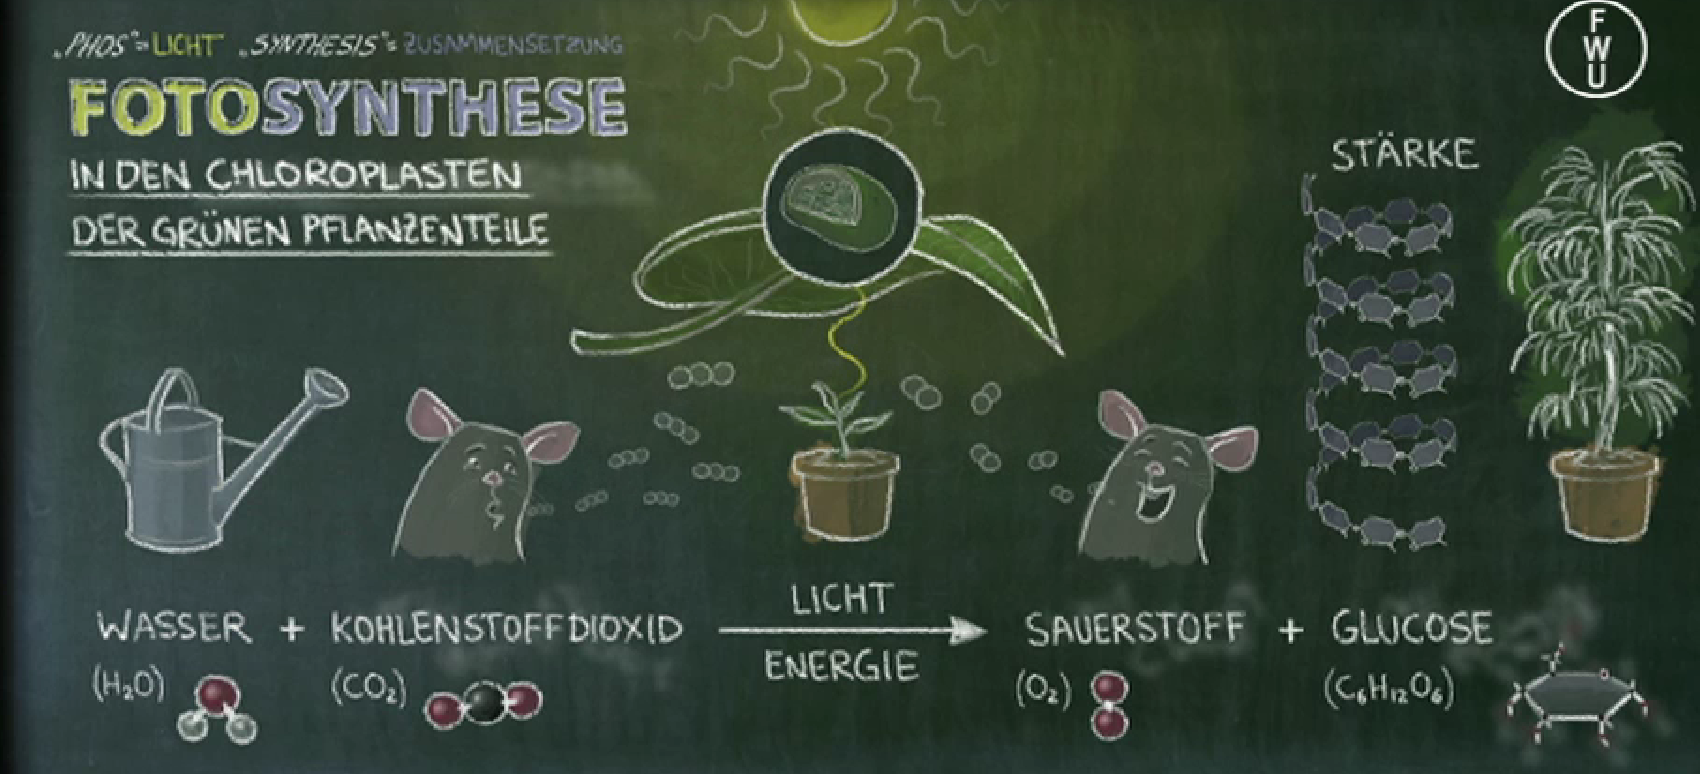 „PHOS“= LICHT „SYNTHESIS“= ZUSAMMENSETZUNG
FOTOSYNTHESE
IN DEN CHLOROPLASTEN
DER GRÜNEN PFLANZENTEILE
F
W
U
STÄRKE
WASSER + KOHLENSTOFFDIOXID
LICHT
ENERGIE
SAUERSTOFF + GLUCOSE
(H₂O)
(CO₂)
(O₂)
(C₆H₁₂O₆)